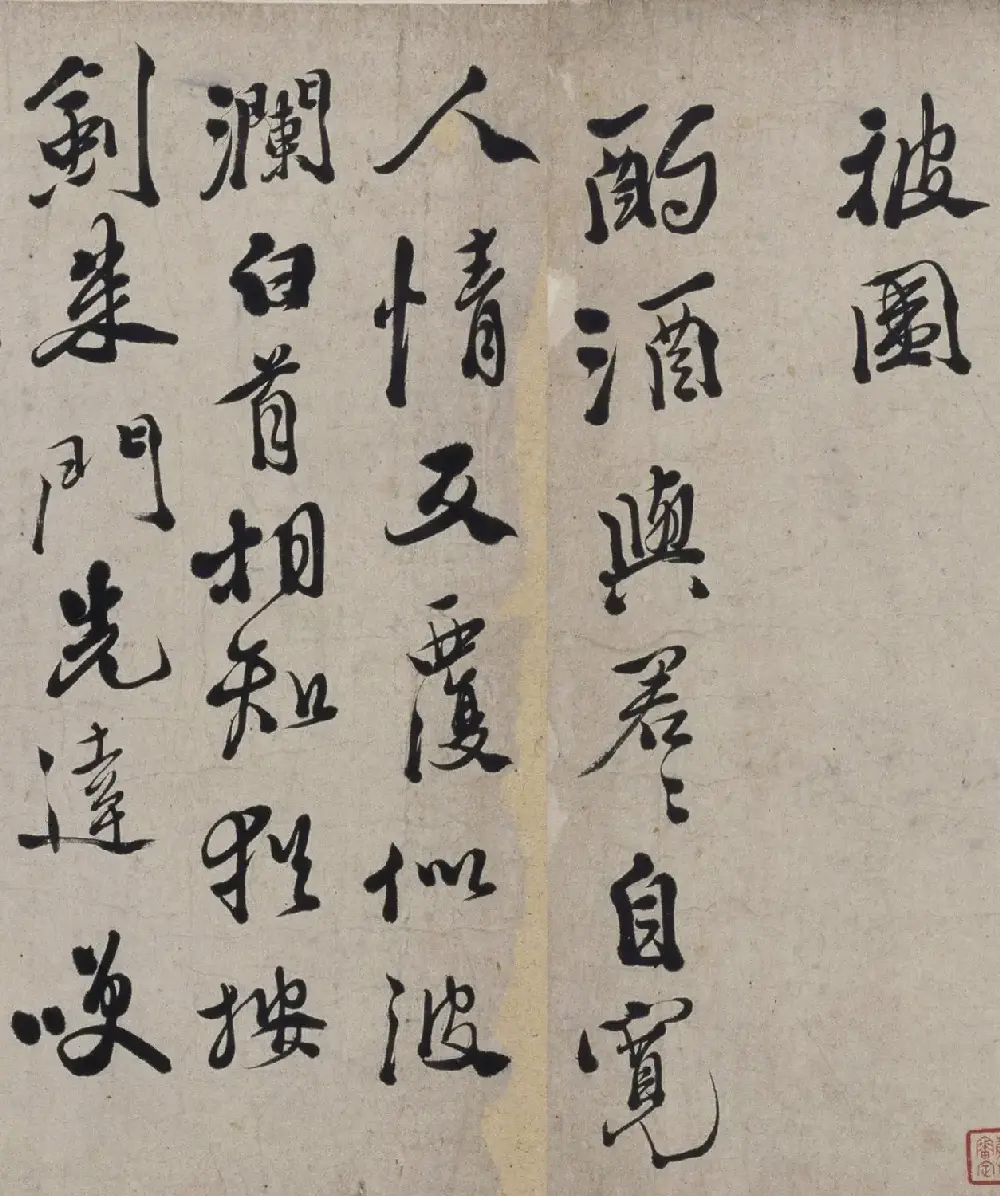 被圖
酌酒與君〻自寬
人情反覆似波
瀾白首相知猶按
劍朱門先達咲